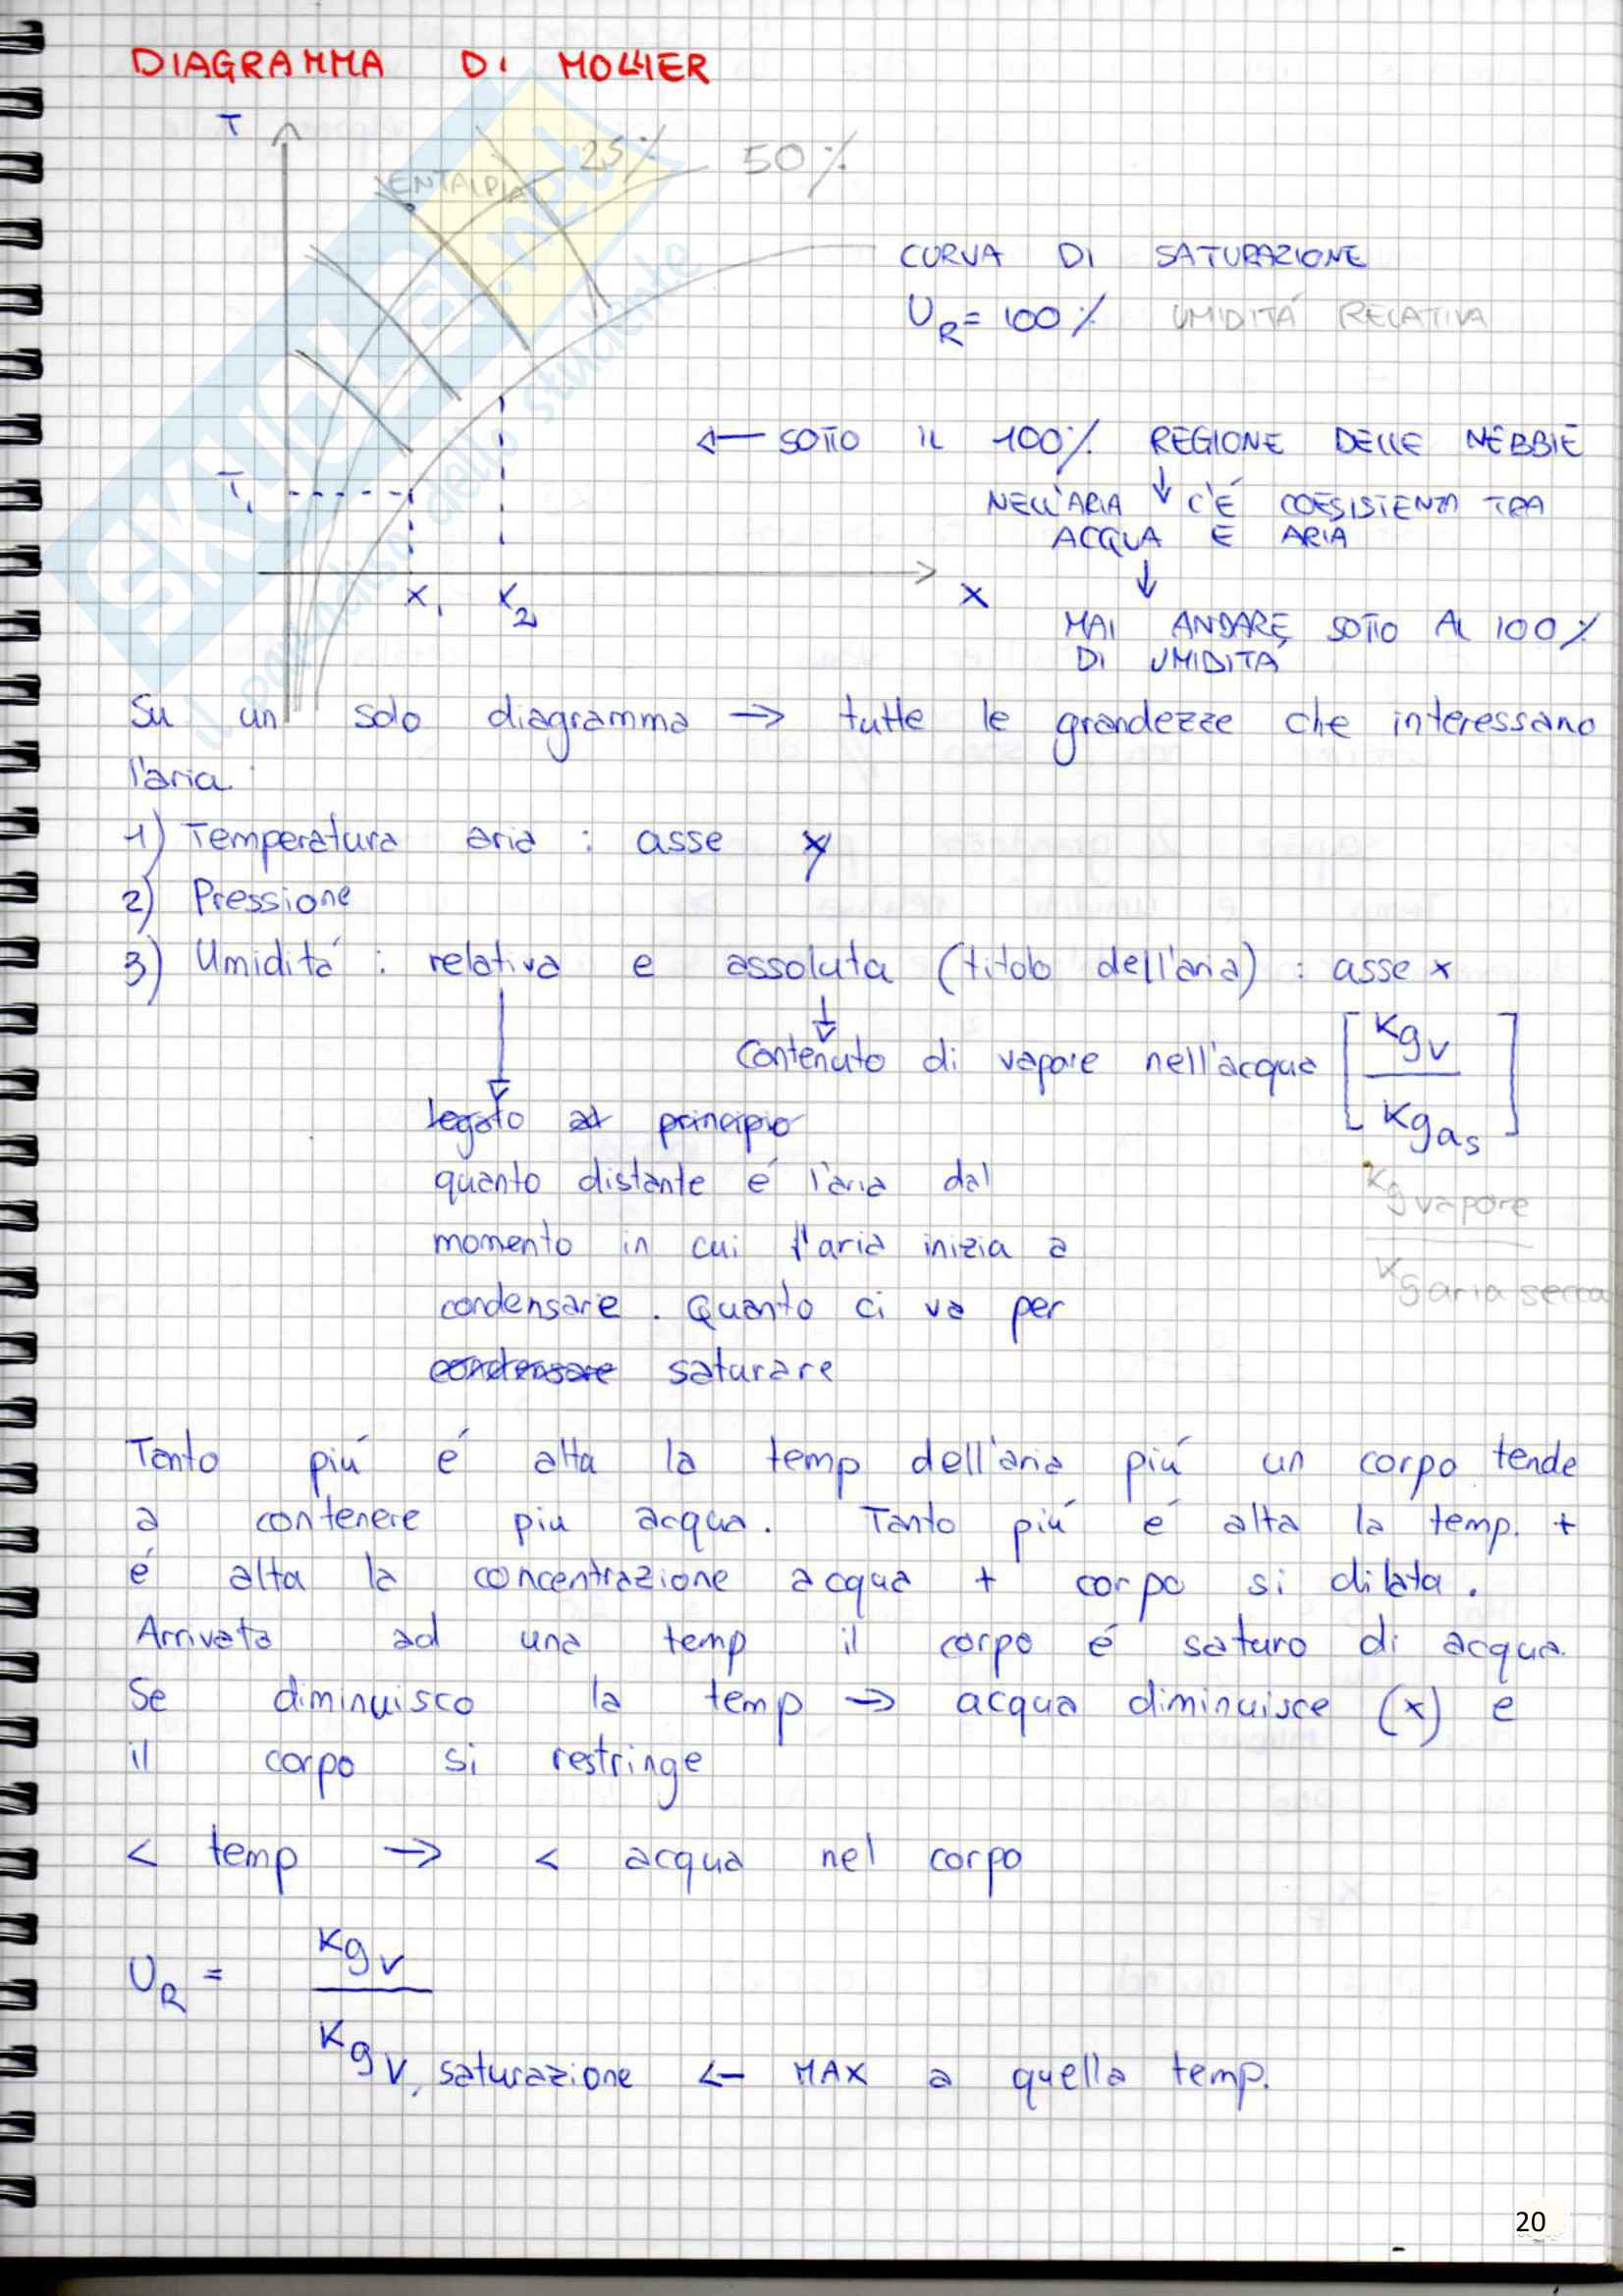 DIAGRAMMA DI MOLLIER
T
ENTALPIA
25%
50%
CURVA DI SATURAZIONE
UR = 100% UMIDITÁ RELATIVA
← SOTTO IL 100% REGIONE DELLE NEBBIE
↓
NELL'ARIA C'É COESISTENZA TRA
ACQUA E ARIA
↓
MAI ANDARE SOTTO AL 100%
DI UMIDITÁ
T1
x1 x2 x
SKUOLA.net
il paradiso dello studente
Su un solo diagramma → tutte le grandezze che interessano
l'aria:
1) Temperatura aria : asse y
2) Pressione
3) Umiditá : relativa e assoluta (titolo dell'aria) : asse x
↓
Contenuto di vapore nell'acqua [Kgv / Kgas]
Kg vapore
Kg aria secca
↓
legato al principio
quanto distante é l'aria dal
momento in cui l'aria inizia a
condensare. Quanto ci va per
condensare saturare
Tanto piú é alta la temp dell'aria piú un corpo tende
a contenere piu acqua. Tanto piú é alta la temp. +
é alta la concentrazione acqua + corpo si dilata.
Arrivato ad una temp il corpo é saturo di acqua.
Se diminuisco la temp → acqua diminuisce (x) e
il corpo si restringe
< temp → < acqua nel corpo
UR = Kgv
Kgv, saturazione ← MAX a quella temp.
20